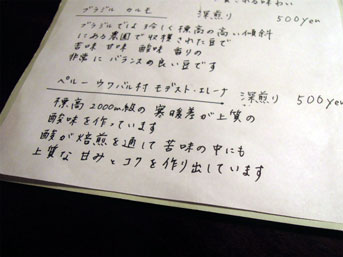 ブラジル カルモ 深煎り 500yen
ブラジルでは珍しく標高の高い傾斜
にある農園で収穫された豆で
苦味 甘味 酸味 香りの
非常にバランスの良い豆です
ペルー ワバル村 モデスト・エレーナ 深煎り 500yen
標高2000m級の寒暖差が上質の
酸味を作っています
酸が焙煎を通して苦味の中にも
上質な甘みとコクを作り出しています